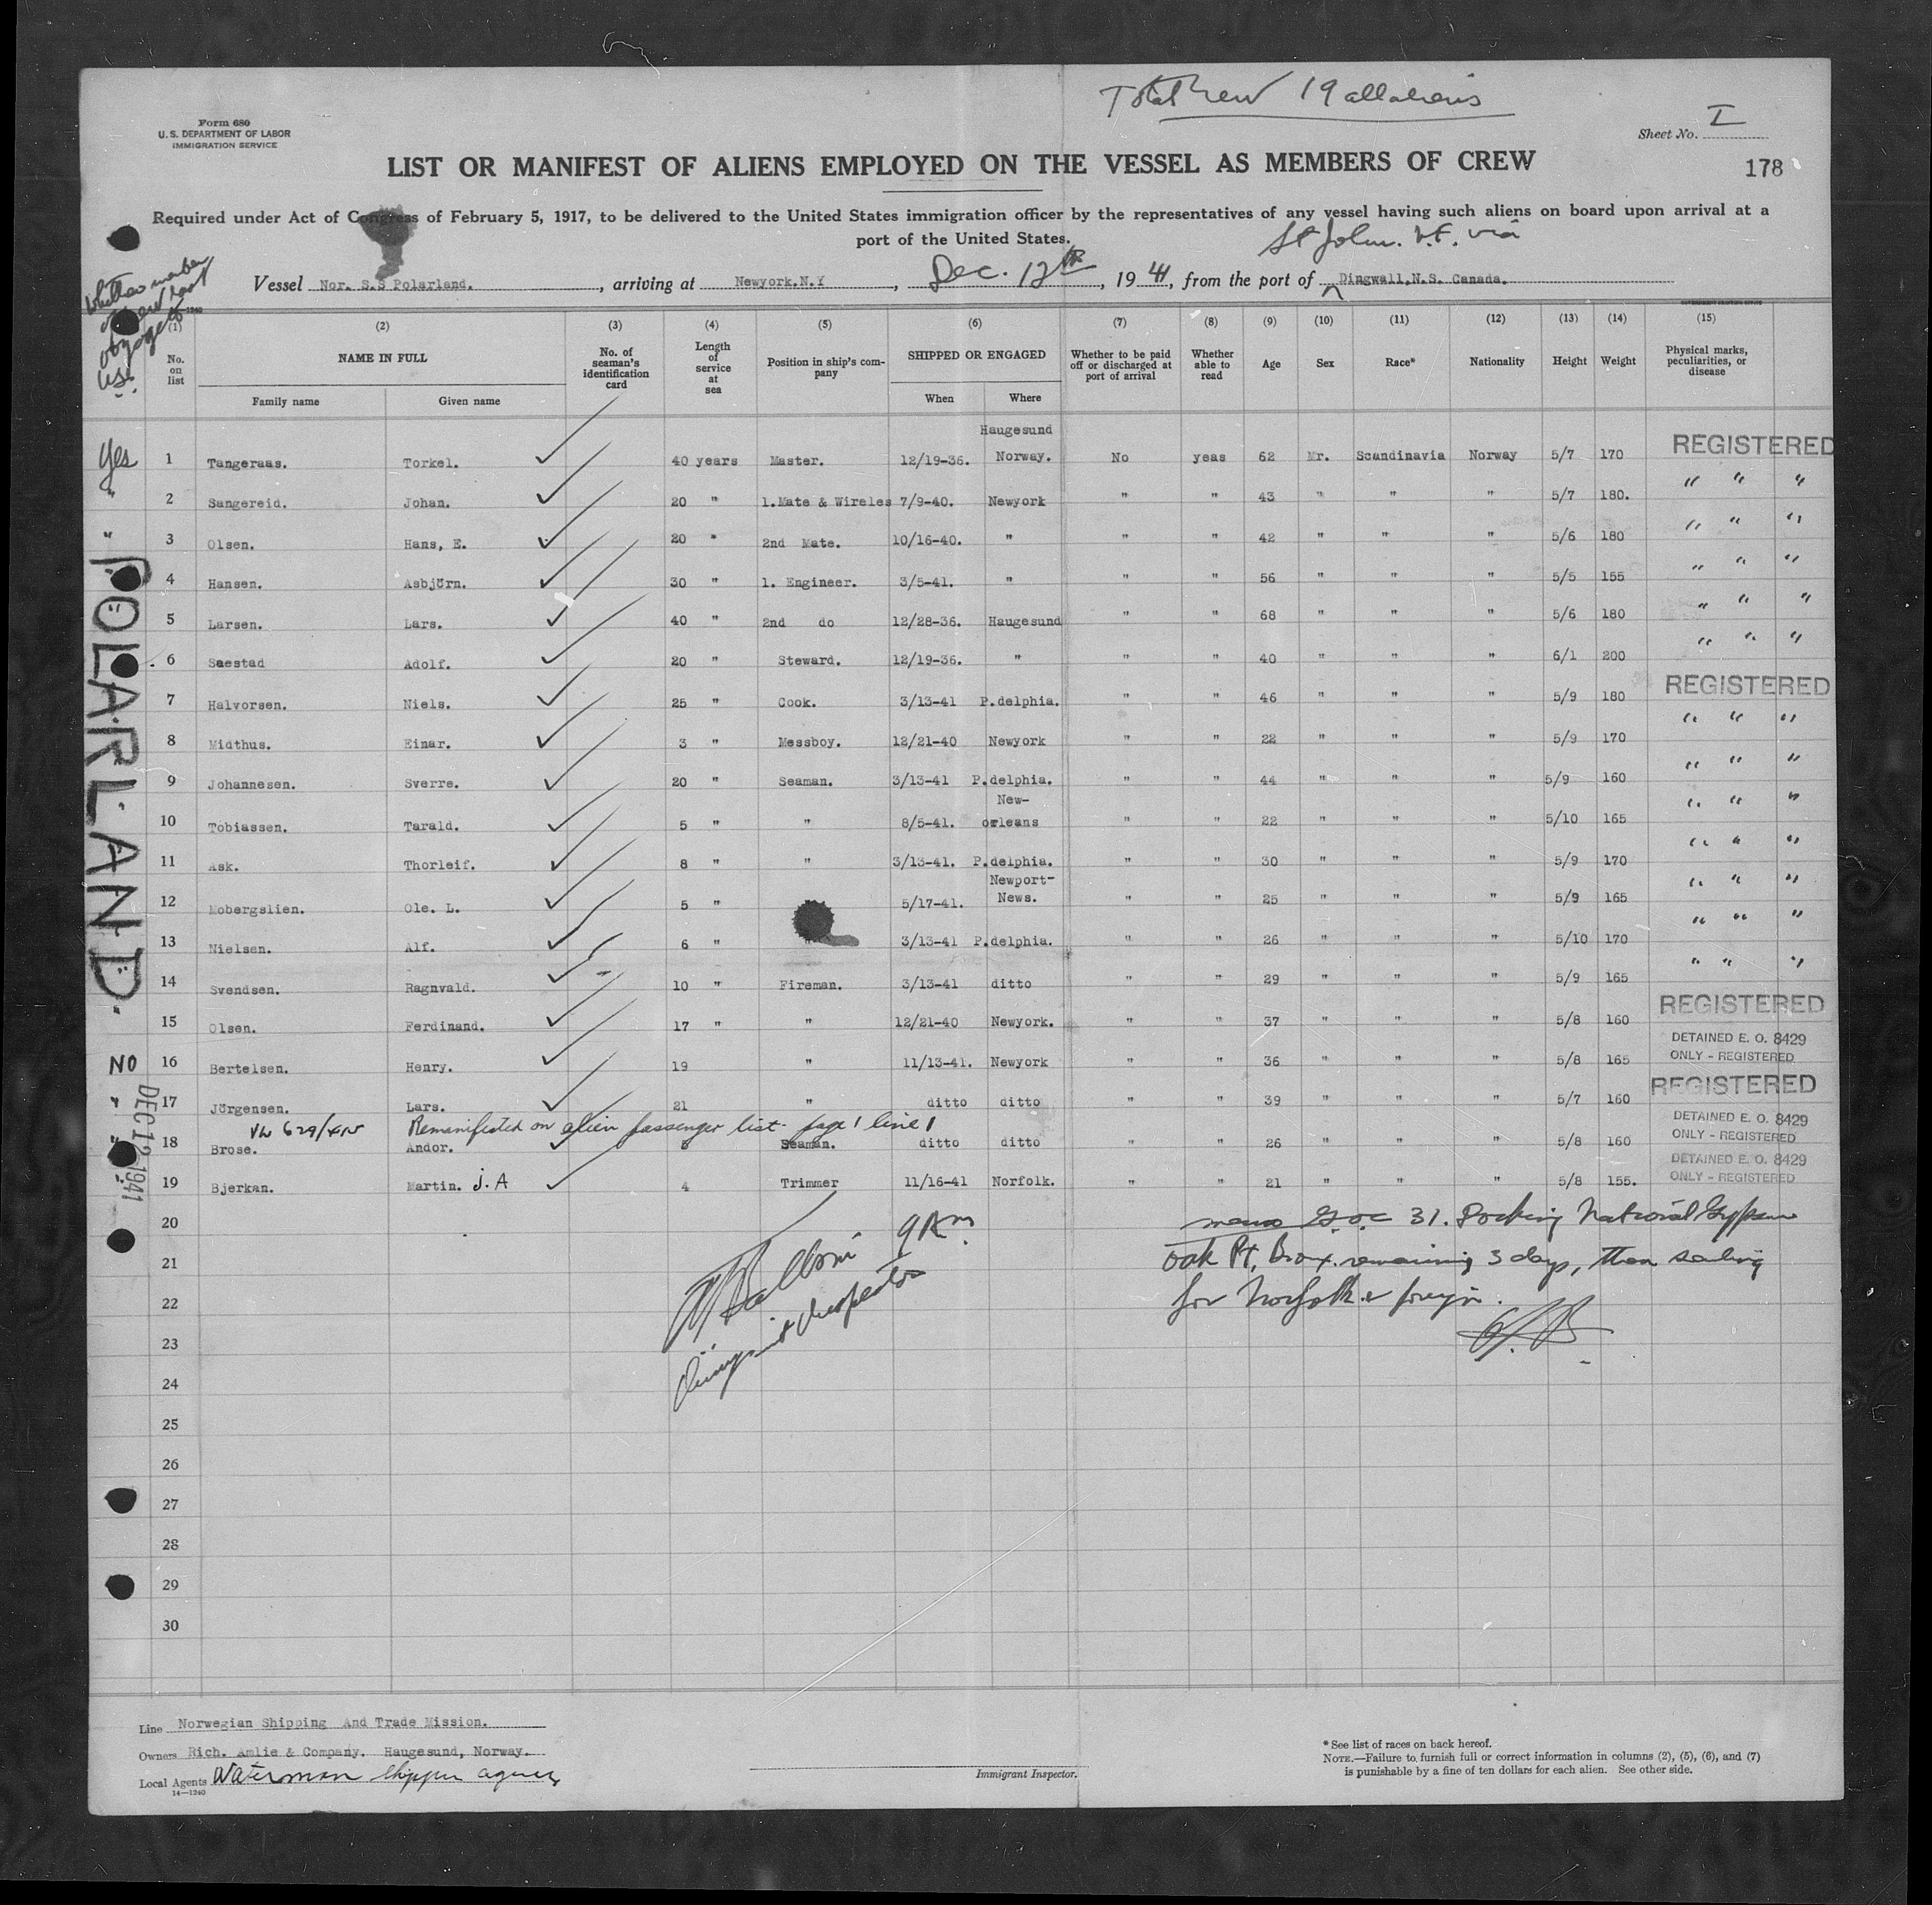 Total Crew 19 all aliens
Form 680
U. S. DEPARTMENT OF LABOR
IMMIGRATION SERVICE
Sheet No. I
LIST OR MANIFEST OF ALIENS EMPLOYED ON THE VESSEL AS MEMBERS OF CREW
178
Required under Act of Congress of February 5, 1917, to be delivered to the United States immigration officer by the representatives of any vessel having such aliens on board upon arrival at a
port of the United States.
St John. N.F. via
Vessel Nor. S.S Polarland. , arriving at Newyork.N.Y , Dec. 12th , 1941, from the port of Dingwall,N.S. Canada.
Whether member
of crew last
voyage to
U.S.
(1) (2) (3) (4) (5) (6) (7) (8) (9) (10) (11) (12) (13) (14) (15)
No. on list NAME IN FULL No. of seaman's identification card Length of service at sea Position in ship's company SHIPPED OR ENGAGED Whether to be paid off or discharged at port of arrival Whether able to read Age Sex Race* Nationality Height Weight Physical marks, peculiarities, or disease
Family name Given name When Where
Haugesund
Yes 1 Tangeraas. Torkel. 40 years Master. 12/19-36. Norway. No yeas 62 Mr. Scandinavia Norway 5/7 170 REGISTERED
" 2 Sangereid. Johan. 20 " 1.Mate & Wireles 7/9-40. Newyork " " 43 " " " 5/7 180. " " "
" 3 Olsen. Hans, E. 20 " 2nd Mate. 10/16-40. " " " 42 " " " 5/6 180 " " "
4 Hansen. Asbjörn. 30 " 1. Engineer. 3/5-41. " " " 56 " " " 5/5 155 " " "
" 5 Larsen. Lars. 40 " 2nd do 12/28-36. Haugesund " " 68 " " " 5/6 180 " " "
6 Saestad Adolf. 20 " Steward. 12/19-36. " " " 40 " " " 6/1 200 " " "
7 Halvorsen. Niels. 25 " Cook. 3/13-41 P.delphia. " " 46 " " " 5/9 180 REGISTERED
8 Midthus. Einar. 3 " Messboy. 12/21-40 Newyork " " 22 " " " 5/9 170 " " "
9 Johannesen. Sverre. 20 " Seaman. 3/13-41 P.delphia. " " 44 " " " 5/9 160 " " "
New-
10 Tobiassen. Tarald. 5 " " 8/5-41. orleans " " 22 " " " 5/10 165 " " "
11 Ask. Thorleif. 8 " " 3/13-41. P.delphia. " " 30 " " " 5/9 170 " " "
Newport-
12 Mobergslien. Ole. L. 5 " 5/17-41. News. " " 25 " " " 5/9 165 " " "
13 Nielsen. Alf. 6 " " 3/13-41 P.delphia. " " 26 " " " 5/10 170 " " "
14 Svendsen. Ragnvald. 10 " Fireman. 3/13-41 ditto 29 " " " 5/9 165 " " "
15 Olsen. Ferdinand. 17 " " 12/21-40 Newyork. " " 37 " " " 5/8 160 REGISTERED
DETAINED E. O. 8429
NO 16 Bertelsen. Henry. 19 " 11/13-41. Newyork " " 36 " " " 5/8 165 ONLY - REGISTERED
" 17 Jörgensen. Lars. 21 " ditto ditto " " 39 " " " 5/7 160 REGISTERED
Remanifested on alien passenger list. page 1 line 1
DETAINED E. O. 8429
" 18 Brose. Andor. Seaman. ditto ditto " " 26 " " " 5/8 160 ONLY - REGISTERED
DETAINED E. O. 8429
" 19 Bjerkan. Martin. J. A 4 Trimmer 11/16-41 Norfolk. " " 21 " " " 5/8 155. ONLY - REGISTERED
POLARLAND.
DEC 12 1941
20
21
22
23
24
25
26
27
28
29
30
9 Am.
Immigrant Inspector
31. Docking National Gypsum
Oak Pt, Bronx. remaining 3 days, then sailing
for Norfolk & foreign.
Line Norwegian Shipping And Trade Mission.
Owners Rich. Amlie & Company. Haugesund, Norway.
Local Agents Waterman Shippin agency
14—1240
Immigrant Inspector.
* See list of races on back hereof.
NOTE.—Failure to furnish full or correct information in columns (2), (5), (6), and (7)
is punishable by a fine of ten dollars for each alien. See other side.